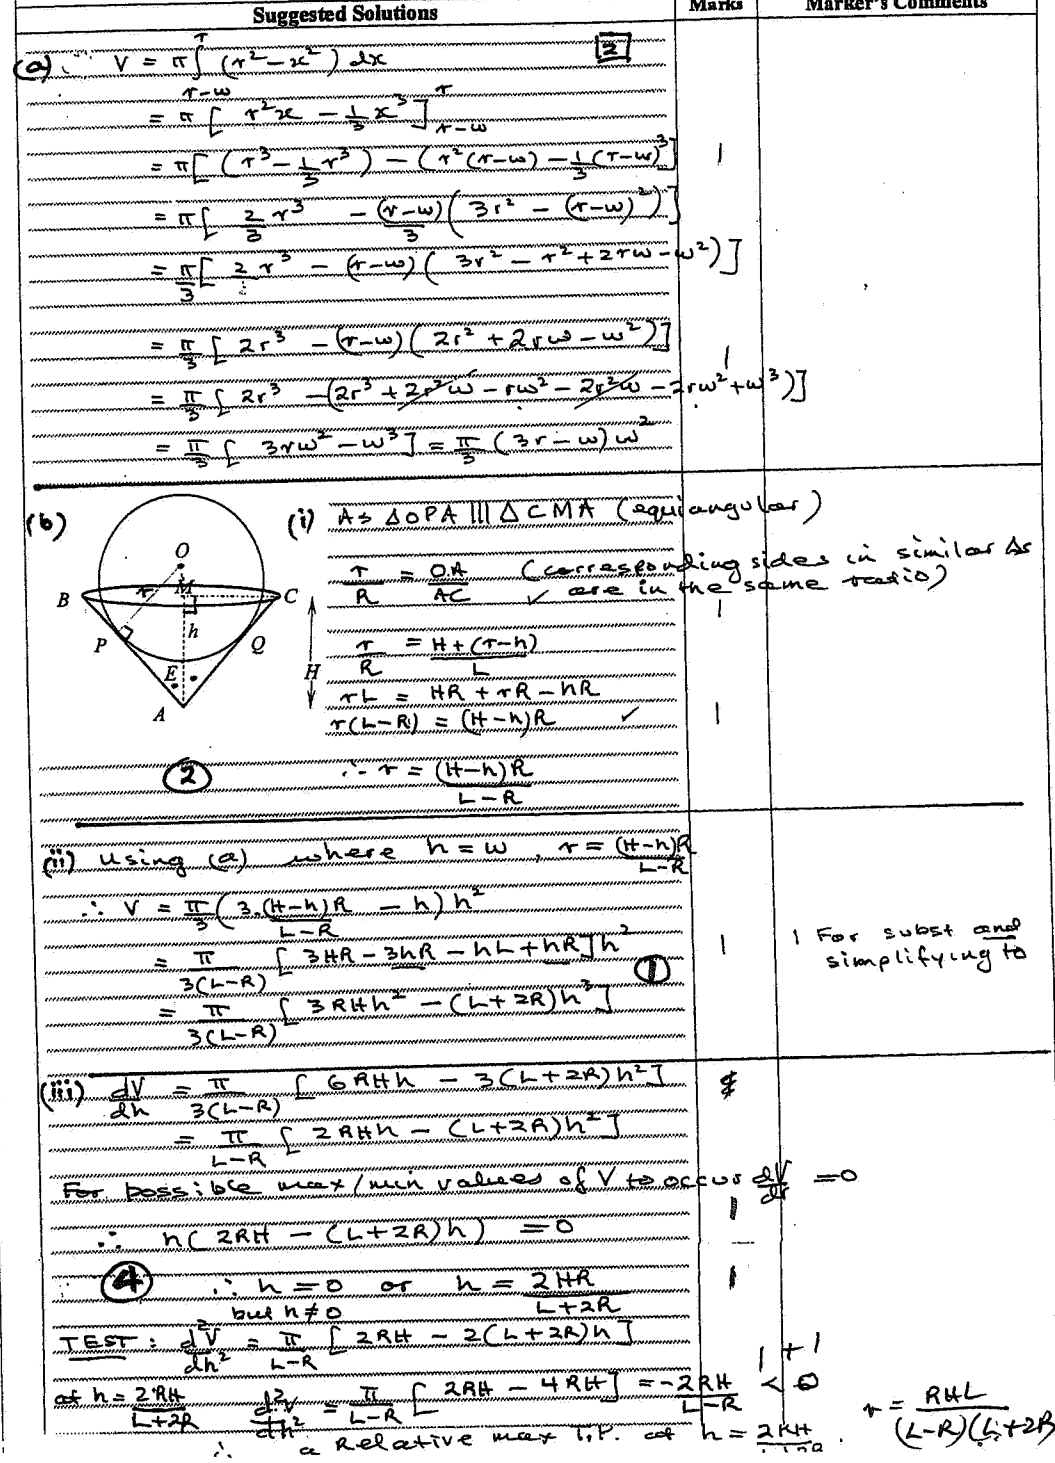 Suggested Solutions Marks Marker's Comments
(a) V = π ∫_{r-w}^{r} (r² - x²) dx [2]
= π [ r²x - 1/3 x³ ]_{r-w}^{r}
= π [ (r³ - 1/3 r³) - (r²(r-w) - 1/3 (r-w)³ ] 1
= π [ 2/3 r³ - (r-w)/3 ( 3r² - (r-w)² ) ]
= π/3 [ 2r³ - (r-w)( 3r² - r² + 2rw - w² ) ]
= π/3 [ 2r³ - (r-w)( 2r² + 2rw - w² ) ] 1
= π/3 [ 2r³ - (2r³ + 2r²w - rw² - 2r²w - 2rw² + w³ ) ]
= π/3 [ 3rw² - w³ ] = π/3 (3r - w) w²
(b) (i) As ΔOPA ||| ΔCMA (equiangular)
r/R = OA/AC (corresponding sides in similar Δs
✓ are in the same ratio) 1
r/R = H+(r-h)/L
rL = HR + rR - hR
r(L-R) = (H-h)R ✓ 1
∴ r = (H-h)R/L-R
O
M
r
B
C
h
P
Q
H
E
A
②
(ii) Using (a) where h = w , r = (H-h)R/L-R
∴ V = π/3 ( 3.(H-h)R/L-R - h) h²
= π/3(L-R) [ 3HR - 3hR - hL + hR ] h² ① 1 1 For subst and
simplifying to
= π/3(L-R) [ 3RHh² - (L+2R)h³ ]
(iii) dV/dh = π/3(L-R) [ 6RHh - 3(L+2R)h² ]
= π/L-R [ 2RHh - (L+2R)h² ]
For possible max/min values of V to occur dV/dr = 0
1
∴ h( 2RH - (L+2R)h ) = 0
④ ∴ h = 0 or h = 2HR/L+2R 1
but h ≠ 0
TEST : d²V/dh² = π/L-R [ 2RH - 2(L+2R)h ]
1 + 1
at h = 2RH/L+2R d²V/dh² = π/L-R [ 2RH - 4RH ] = -2RH/L-R < 0
r = RHL/(L-R)(L+2R
∴ a Relative max T.P. at h = 2RH/L+2R .